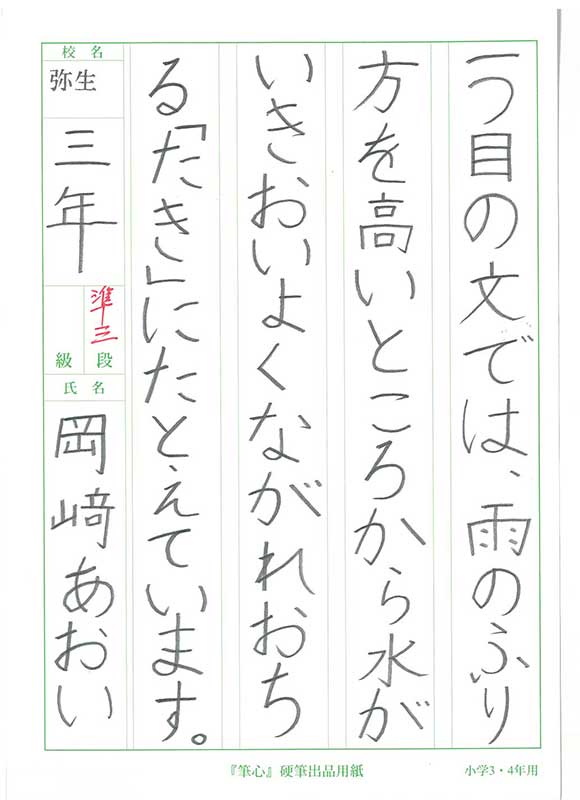 一つ目の文では、雨のふり
方を高いところから水が
いきおいよくながれおち
る「たき」にたとえています。
校名
弥生
三年
準三
級 段
氏名
岡﨑あおい
『筆心』硬筆出品用紙
小学3・4年用